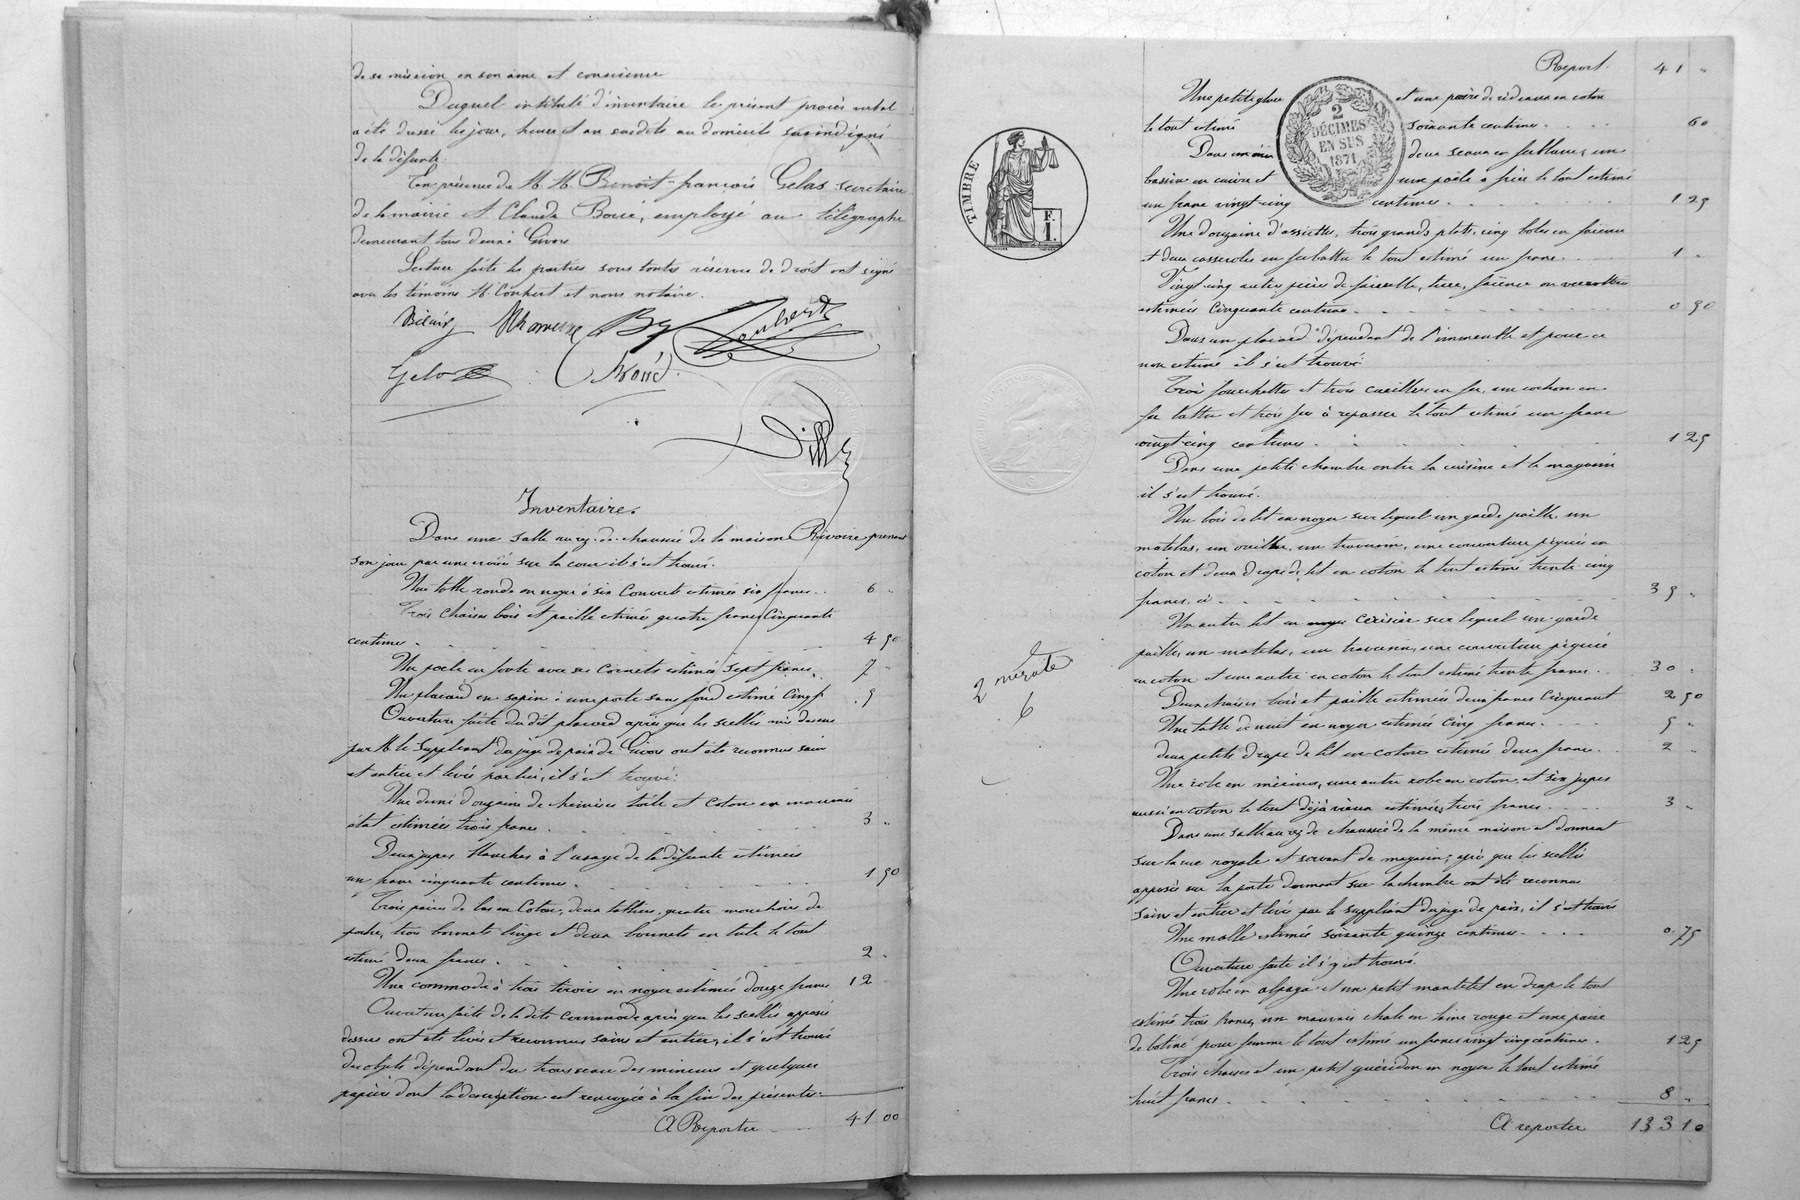 de sa mission en son âme et conscience
Duquel intitulé d'inventaire le présent procès verbal
a été dressé les jour, heure et an susdits au domicile susindiqué
de la défunte.
En présence de M. M. Benoit-françois Gelas secrétaire
de la mairie et Claude Boué, employé au télégraphe
demeurant tous deux à Givors
Lecture faite les parties sous toutes réserves de droit ont signé
avec les témoins M. Coubert et nous notaire.
Inventaire.
Dans une salle au rez-de-chaussée de la maison Rivoire prenant
son jour par une croisée sur la cour il s'est trouvé.
Une table ronde en noyer à six Couverts estimée six francs. 6 "
Trois Chaises bois et paille estimé quatre francs Cinquante
centimes. 4 50
Un poele en fonte avec ses Cornets estimé sept francs. 7 "
Un placard en sapin à une porte sans fond estimé Cinq f. 5
Ouverture faite du dit placard après que les scellés mis dessus
par M. le Suppléant du juge de paix de Givors ont été reconnus sain
et entier et levés par lui, il s'est trouvé.
Une demi douzaine de chemises toile et Coton en mauvais
état estimées trois francs. 3 "
Deux jupes blanches à l'usage de la défunte estimées
un franc cinquante centimes. 1 50
Trois paires de bas en Coton, deux tabliers, quatre mouchoirs de
poche, trois bonnets linge et deux bonnets en tulle le tout
estimé deux francs. 2 "
Une commode à trois tiroirs en noyer estimée douze francs 12 "
Ouverture faite de la dite Commode après que les scellés apposés
dessus ont été levés et reconnus sains et entiers, il s'est trouvé
des objets dépendant du trousseau des mineurs et quelques
papiers dont la description est renvoyée à la fin des présentes.
A Reporter 41 00
TIMBRE
F.
1.
2
DÉCIMES
EN SUS
1871
Report. 41 "
Une petite glace et une paire de rideaux en coton
le tout estimé soixante centimes. 60
Dans deux seaux en ferblanc, un
bassin en cuivre et une poële à frire le tout estimé
un franc vingt-cinq centimes. 1 25
Une douzaine d'assiettes, trois grands plats, cinq boles en faïence
et deux casseroles en fer battu le tout estimé un franc. 1 "
Vingt-cinq autres pièces de vaisselle, terre, faïence ou verroterie
estimées Cinquante centimes. 0 50
Dans un placard dépendant de l'immeuble et pour ce
non estimé il s'est trouvé.
Trois fourchettes et trois cuillers en fer, un cochon en
fer battu et trois fers à repasser le tout estimé un franc
vingt-cinq centimes. 1 25
Dans une petite chambre entre la cuisine et le magasin
il s'est trouvé.
Un bois de lit en noyer sur lequel un garde paille, un
matelas, un oreiller, un traversin, une couverture piquée en
coton et deux draps de lit en coton le tout estimé trente cinq
francs. ci 35 "
Un autre lit en noyer Cerisier sur lequel un garde
paille, un matelas, un traversin, une couverture piquée
en coton et une autre en coton le tout estimé trente francs. 30 "
Deux chaises bois et paille estimées deux francs Cinquante 2 50
Une table de nuit en noyer estimée Cinq francs. 5 "
deux petits draps de lit en coton estimés deux francs. 2 "
Une robe en mérinos, une autre robe en coton, et six jupes
aussi en coton le tout déjà vieux estimées trois francs. 3 "
Dans une salle au rez de chaussée de la même maison et donnant
sur la rue royale et servant de magasin, après que les scellés
apposés sur la porte donnant sur la chambre ont été reconnus
sains et entiers et levés par le suppléant du juge de paix, il s'est trouvé
Une malle estimée soixante quinze centimes. 0 75
Ouverture faite il s'y est trouvé
Une robe en alpaga et un petit mantelet en drap le tout
estimé trois francs, un mauvais chale en laine rouge et une paire
de botines pour femme le tout estimé un franc vingt cinq centimes. 1 25
Trois chaises et un petit guéridon en noyer le tout estimé
huit francs. 8 "
A reporter 133 10